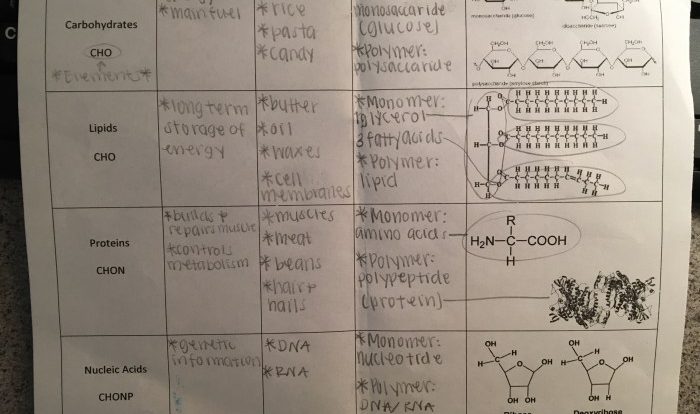 Carbohydrates
CHO
*Elements*
*main fuel
*rice
*pasta
*candy
monosaccaride
(glucose)
*Polymer:
polysaccaride
monosaccharide (glucose)
disaccharide (sucrose)
polysaccharide (amylose starch)
Lipids
CHO
*long term
storage of
energy
*butter
*oil
*waxes
*cell
membranes
*Monomer:
1glycerol
3 fatty acids
*Polymer:
lipid
Proteins
CHON
*builds +
repairs muscle
*controls
metabolism
*muscles
*meat
*beans
*hair +
nails
*Monomer:
amino acids
*Polymer:
polypeptide
(protein)
R
H₂N—C—COOH
H
Nucleic Acids
CHONP
*genetic
information
*DNA
*RNA
*Monomer:
nucleotide
*Polymer:
DNA/RNA
Ribose
Deoxyribose